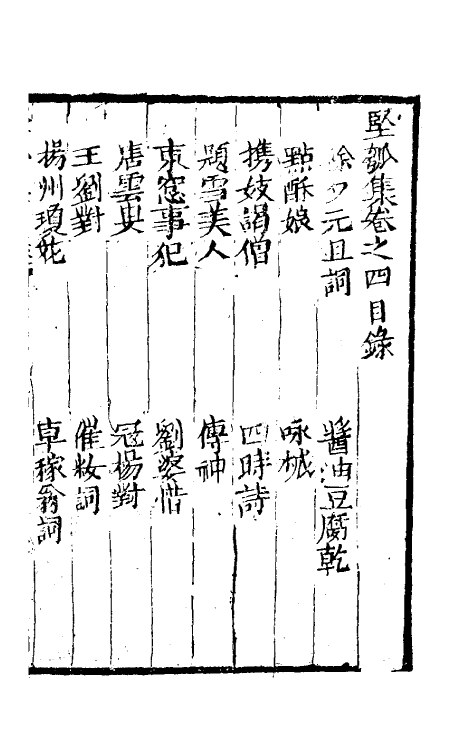 堅瓠集卷之四目錄
除夕元旦詞 醬油豆腐乾
點酥娘 咏槭
携妓謁僧 四時詩
題雪美人 傳神
東窓事犯 劉婆惜
唐雲叟 冠楊對
王劉對 催粧詞
揚州瓊花 卓稼翁詞